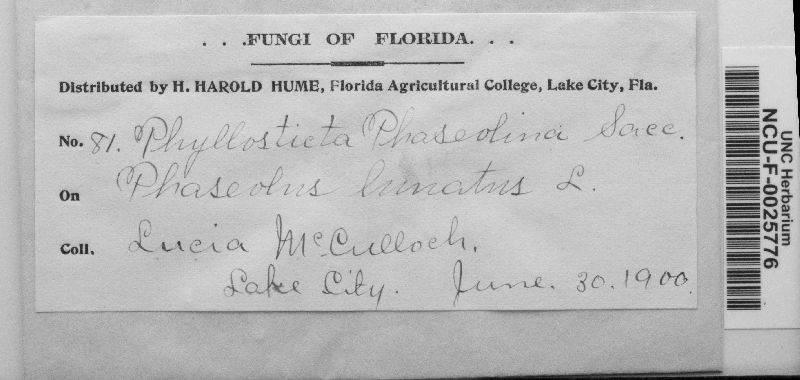 . . .FUNGI OF FLORIDA. . .
Distributed by H. HAROLD HUME, Florida Agricultural College, Lake City, Fla.
No. 81. Phyllosticta Phaseolina Sacc.
On Phaseolus lunatus L.
Coll. Lucia McCulloch.
Lake City. June. 30. 1900.
UNC Herbarium
NCU-F-0025776